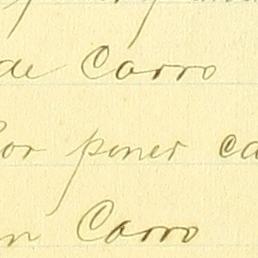 de Carro
or poner ca
n Carro